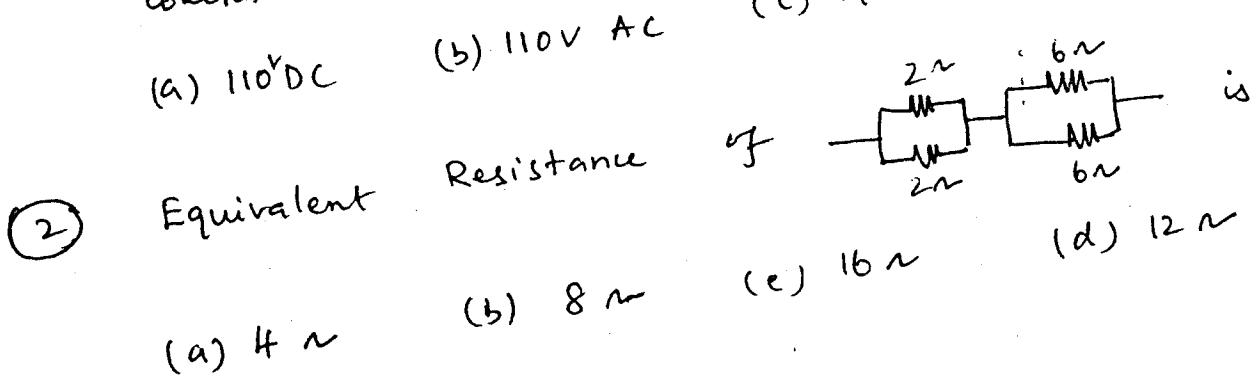 (a) 110V DC (b) 110V AC (c)
② Equivalent Resistance of 2Ω 2Ω 6Ω 6Ω is
(a) 4Ω (b) 8Ω (c) 16Ω (d) 12Ω